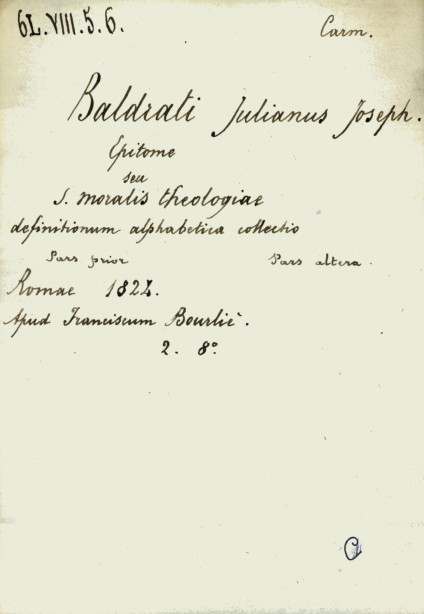 6L.VIII.5.6. Carm.
Baldrati Julianus Joseph.
Epitome
seu
S. moralis theologiae
definitionum alphabetica collectio
Pars prior Pars altera.
Romae 1824.
Apud Franciscum Bourliè.
2. 8°.